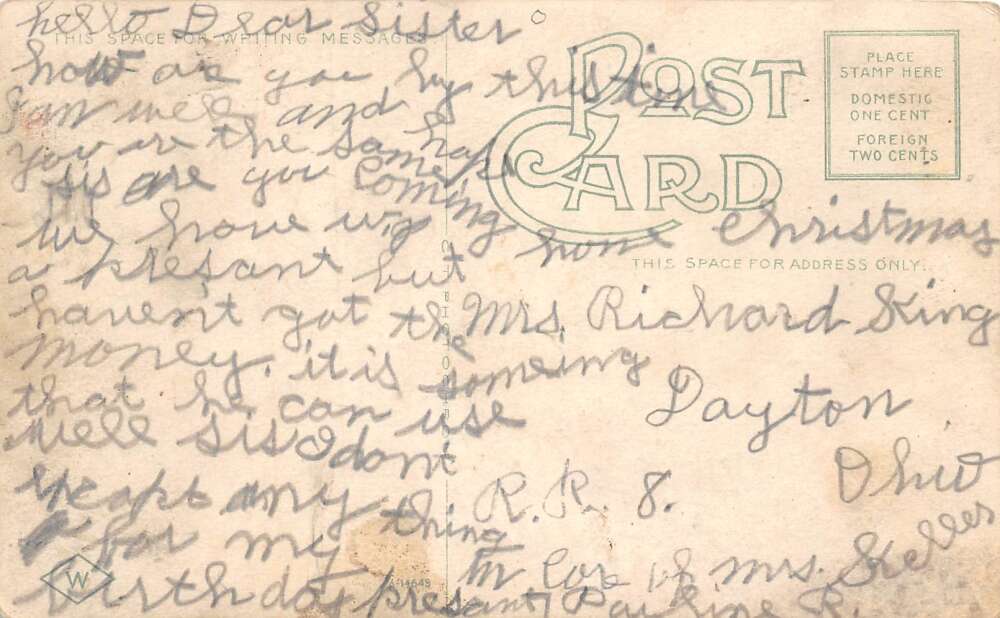 hello Dear Sister
THIS SPACE FOR WRITING MESSAGES
how are you by this time
I am well and hope
you are the same
sis are you coming
home Christmas
we have Wig
a presant but
havent got the
money. it is someing
that he can use
well sis I dont
expept any thing
for my
birthday presant Pauline R.
POST CARD
PLACE
STAMP HERE
DOMESTIC
ONE CENT
FOREIGN
TWO CENTS
THIS SPACE FOR ADDRESS ONLY.
Mrs. Richard King
Dayton
Ohio
R. R. 8.
In Care of mrs. Skelles
W
A-14649